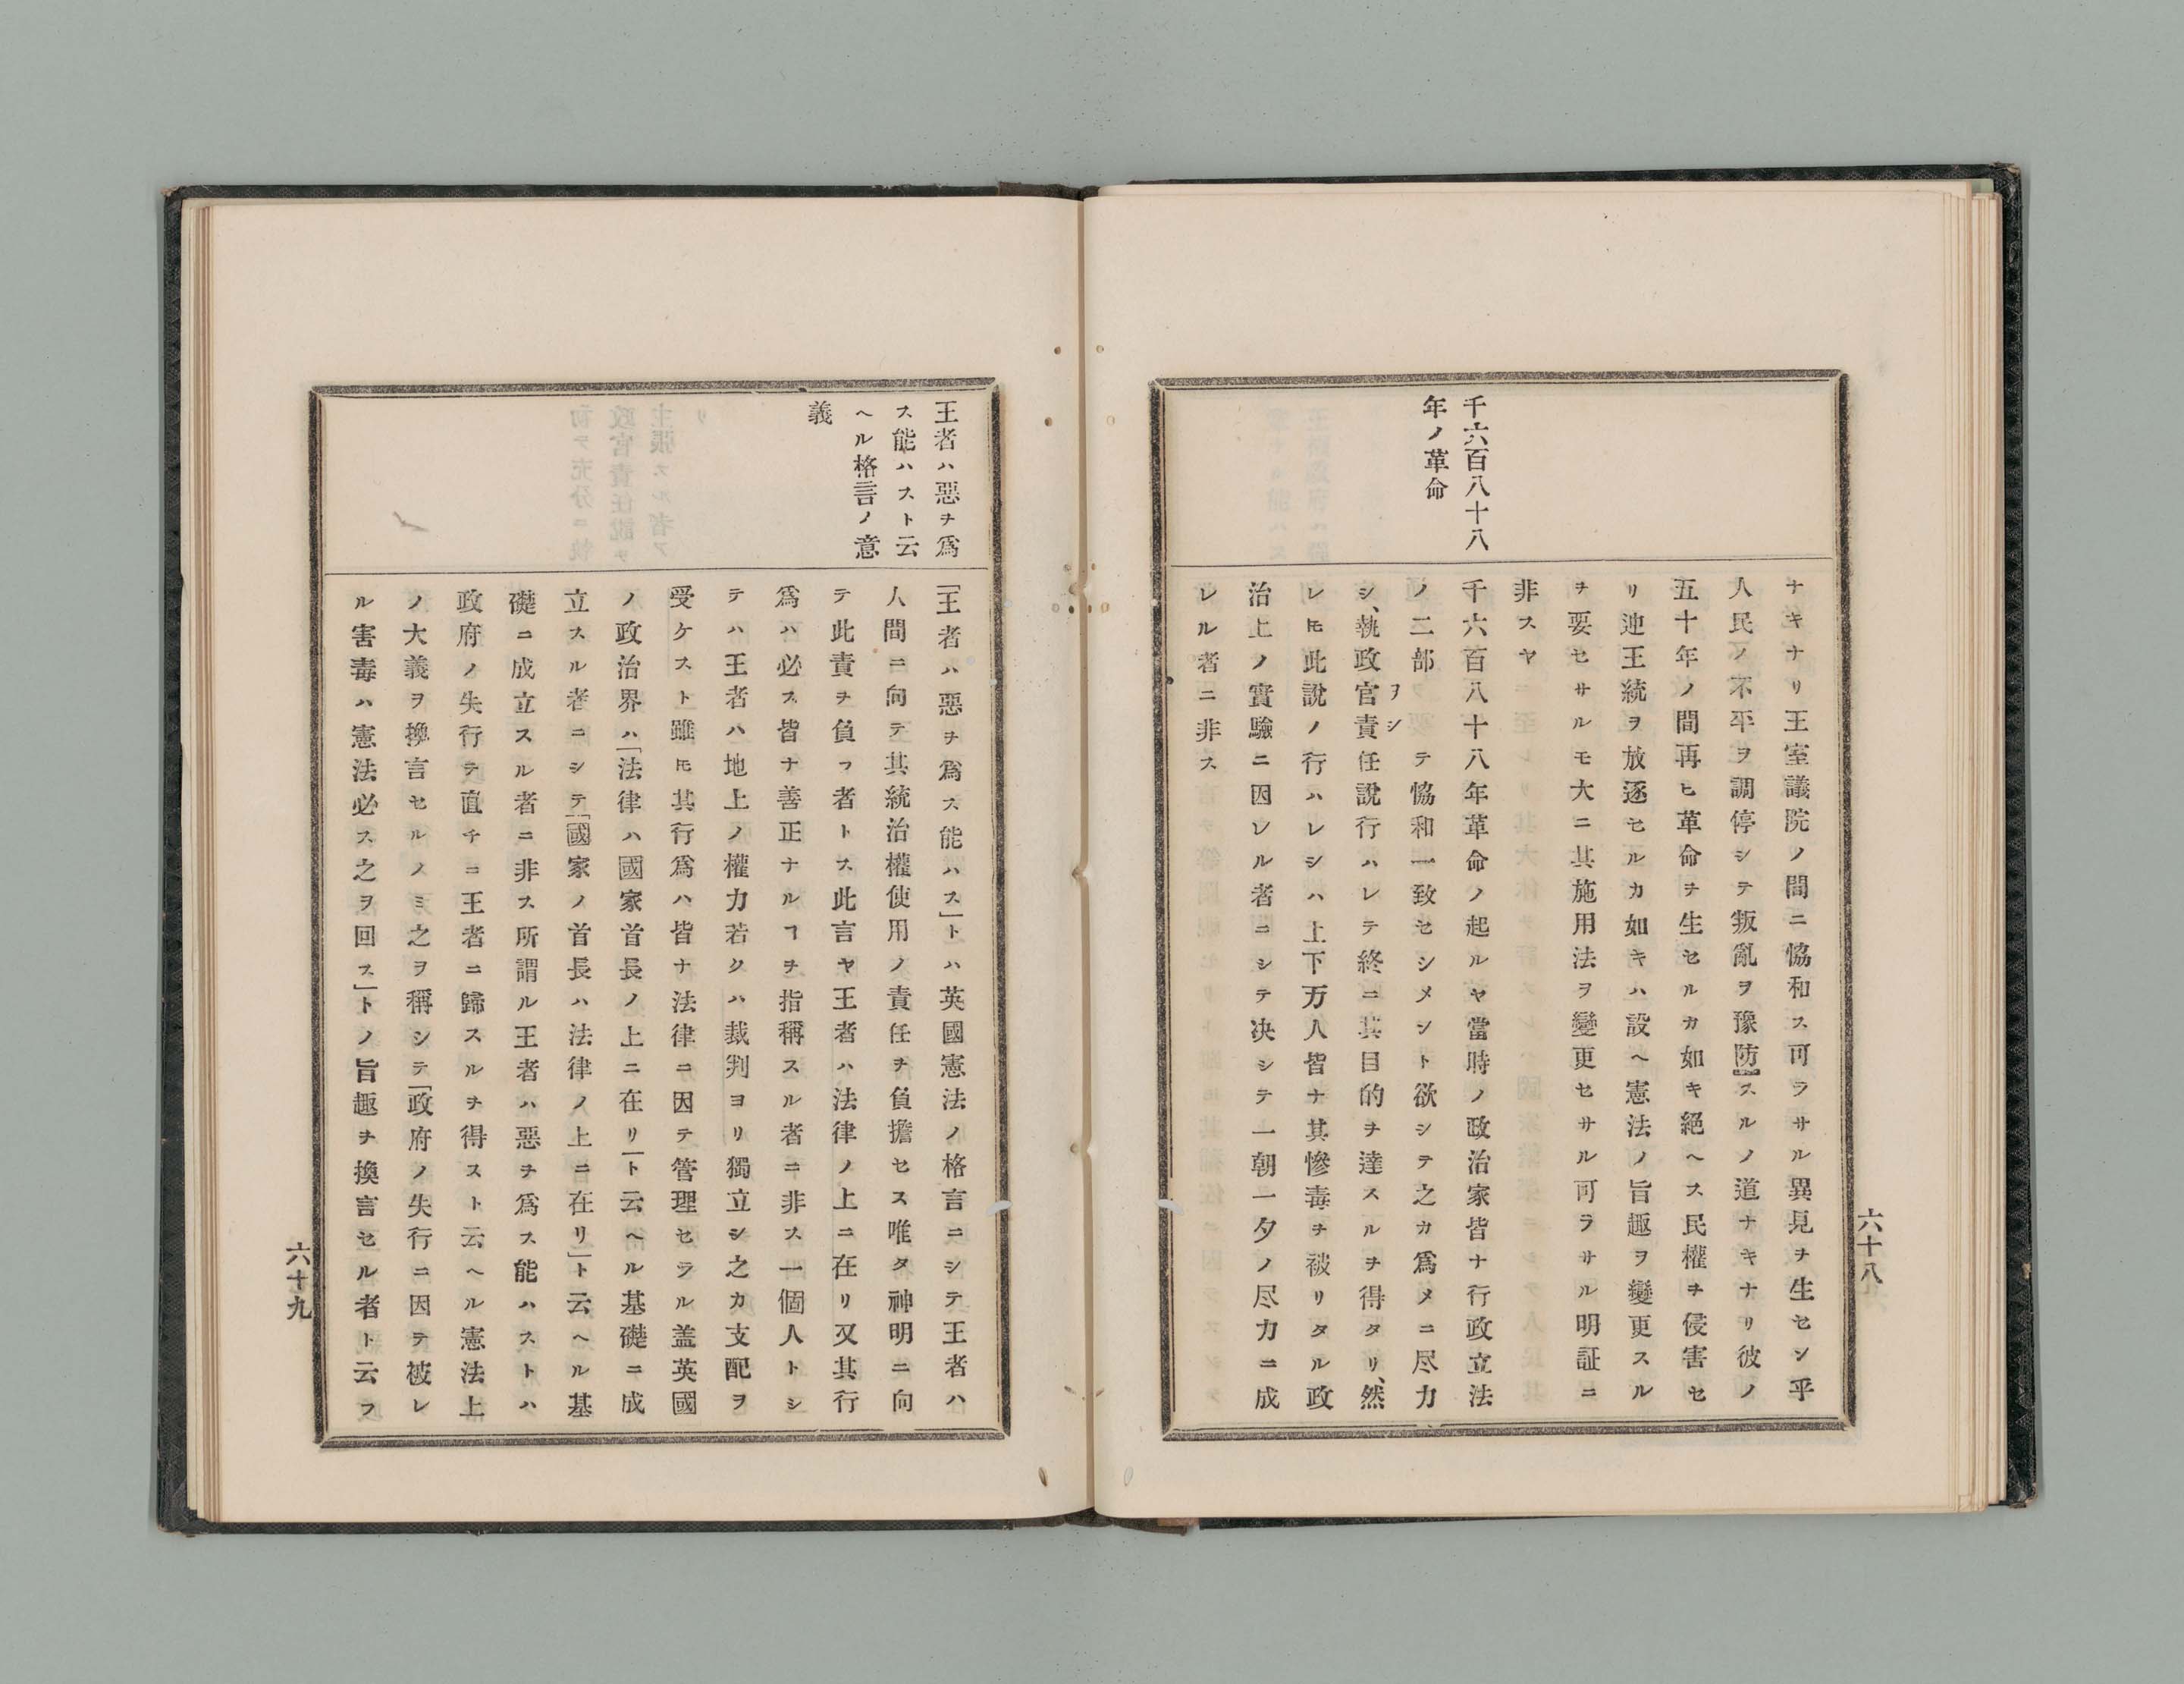 六十八
千六百八十八
年ノ革命
ナキナリ王室議院ノ間ニ恊和ス可ラサル異見ヲ生セン乎
人民ノ不平ヲ調停シテ叛亂ヲ豫防スルノ道ナキナリ彼ノ
五十年ノ間再ヒ革命ヲ生セルカ如キ絕ヘス民權ヲ侵害セ
リ迚王統ヲ放逐セルカ如キハ設ヘ憲法ノ旨趣ヲ變更スル
ヲ要セサルモ大ニ其施用法ヲ變更セサル可ラサル明証ニ
非スヤ
千六百八十八年革命ノ起ルヤ當時ノ政治家皆ナ行政立法
ノ二部ヲシテ恊和一致セシメント欲シテ之カ爲メニ尽力
シ、執政官責任說行ハレテ終ニ其目的ヲ達スルヲ得タリ、然
レ𪜈此說ノ行ハレシハ上下万人皆ナ其慘毒ヲ被リタル政
治上ノ實驗ニ因レル者ニシテ决シテ一朝一夕ノ尽力ニ成
レル者ニ非ス
王者ハ惡ヲ爲
ス能ハスト云
ヘル格言ノ意
義
「王者ハ惡ヲ爲ス能ハス」トハ英國憲法ノ格言ニシテ王者ハ
人間ニ向テ其統治權使用ノ責任ヲ負擔セス唯タ神明ニ向
テ此責ヲ負フ者トス此言ヤ王者ハ法律ノ上ニ在リ又其行
爲ハ必ス皆ナ善正ナルヿヲ指稱スル者ニ非ス一個人トシ
テハ王者ハ地上ノ權力若クハ裁判ヨリ獨立シ之カ支配ヲ
受ケスト雖𪜈其行爲ハ皆ナ法律ニ因テ管理セラル盖英國
ノ政治界ハ「法律ハ國家首長ノ上ニ在リ」ト云ヘル基礎ニ成
立スル者ニシテ「國家ノ首長ハ法律ノ上ニ在リ」ト云ヘル基
礎ニ成立スル者ニ非ス所謂ル王者ハ惡ヲ爲ス能ハストハ
政府ノ失行テ直チニ王者ニ歸スルヲ得スト云ヘル憲法上
ノ大義ヲ換言セルノミ之ヲ稱シテ「政府ノ失行ニ因テ被レ
ル害毒ハ憲法必ス之ヲ回ス」トノ旨趣ヲ換言セル者ト云フ
六十九